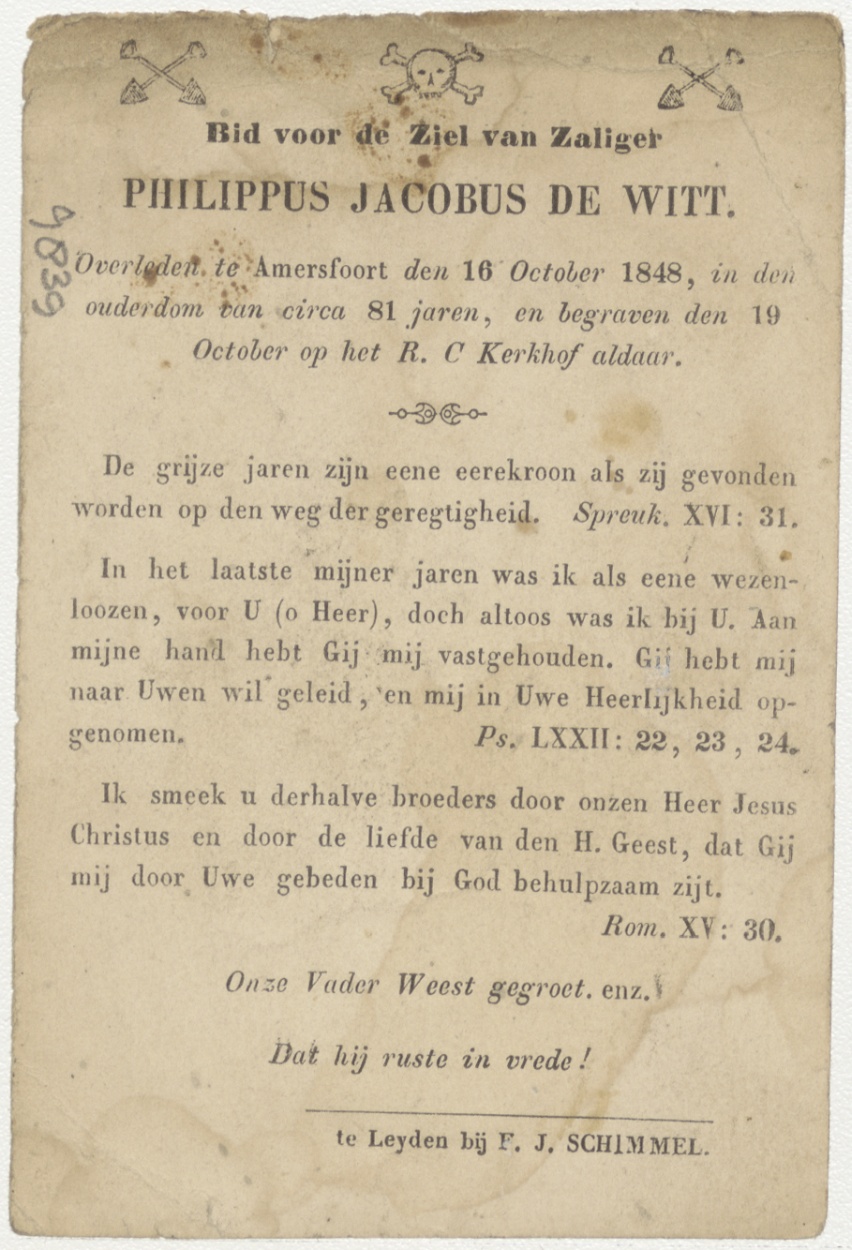 Bid voor de Ziel van Zaliger
PHILIPPUS JACOBUS DE WITT.
9839
Overleden te Amersfoort den 16 October 1848, in den
ouderdom van circa 81 jaren, en begraven den 19
October op het R. C Kerkhof aldaar.
De grijze jaren zijn eene eerekroon als zij gevonden
worden op den weg der geregtigheid. Spreuk. XVI: 31.
In het laatste mijner jaren was ik als eene wezen-
loozen, voor U (o Heer), doch altoos was ik bij U. Aan
mijne hand hebt Gij mij vastgehouden. Gij hebt mij
naar Uwen wil geleid, en mij in Uwe Heerlijkheid op-
genomen. Ps. LXXII: 22, 23, 24.
Ik smeek u derhalve broeders door onzen Heer Jesus
Christus en door de liefde van den H. Geest, dat Gij
mij door Uwe gebeden bij God behulpzaam zijt.
Rom. XV: 30.
Onze Vader Weest gegroet. enz.
Dat hij ruste in vrede!
te Leyden bij F. J. SCHIMMEL.